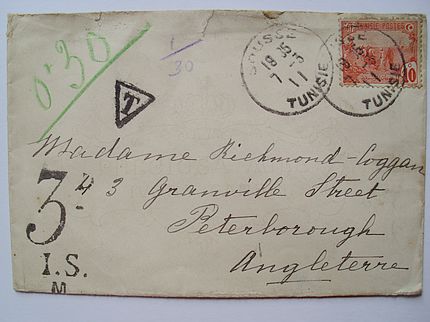 0·30
1/30
SOUSSE
18 15
7 - 3
11
TUNISIE
TUNISIE POSTES
10
TUNISIE
T
Madame Richmond-Coggan
43 Granville Street
Peterborough
Angleterre
3d
I.S.
M